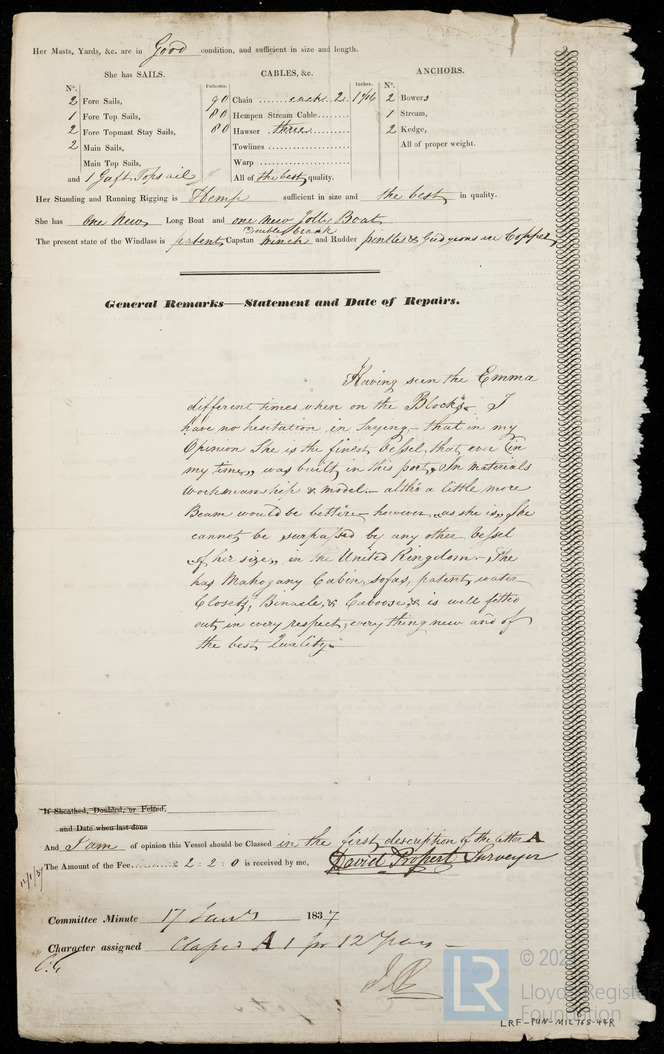 Her Masts, Yards, &c. are in Good condition, and sufficient in size and length.
She has SAILS. CABLES, &c. ANCHORS.
No. Fathoms. Inches. No.
2 Fore Sails, 90 Chain ........ each 2 1 7/16 2 Bowers
1 Fore Top Sails, 80 Hempen Stream Cable ........ 1 Stream,
2 Fore Topmast Stay Sails, 80 Hawser three ........ 2 Kedge,
2 Main Sails, Towlines ........ All of proper weight.
Main Top Sails, Warp ........
and 1 Gaft Topsail All of the best quality.
Her Standing and Running Rigging is Hemp sufficient in size and the best in quality.
She has One New Long Boat and one new Jolle Boat
Double Crank
The present state of the Windlass is patent Capstan winch and Rudder pentles & Gudgeons in Copper
General Remarks—Statement and Date of Repairs.
Having seen the Emma
different times when on the Blocks - I
have no hesitation in Saying - that in my
Opinion She is the finest Vessel, that ever (in
my time) was built in this port, In materials
Workmanship & Model - altho a little more
Beam would be bettire - however, as she is, She
cannot be surpassed by any other Vessel
of her size, in the United Kingdom - She
has Mahogany Cabin, Sofas, patent water
Closets, Binacle, & Caboose, & is well fitted
out in every respect, every thing new and of
the best Quality
If Sheathed, Doubled, or Felted,
and Date when last done
And I am of opinion this Vessel should be Classed in the first description of the letter A
The Amount of the Fee .......... £ 2 : 2 : 0 is received by me, David Propert Surveyor
12/1/37
Committee Minute 17 Jany 1837
Character assigned Classed A 1 for 12 Years
LR
© 202
Lloyd's Register
Foundation
LRF-PUN-MIL765-44R